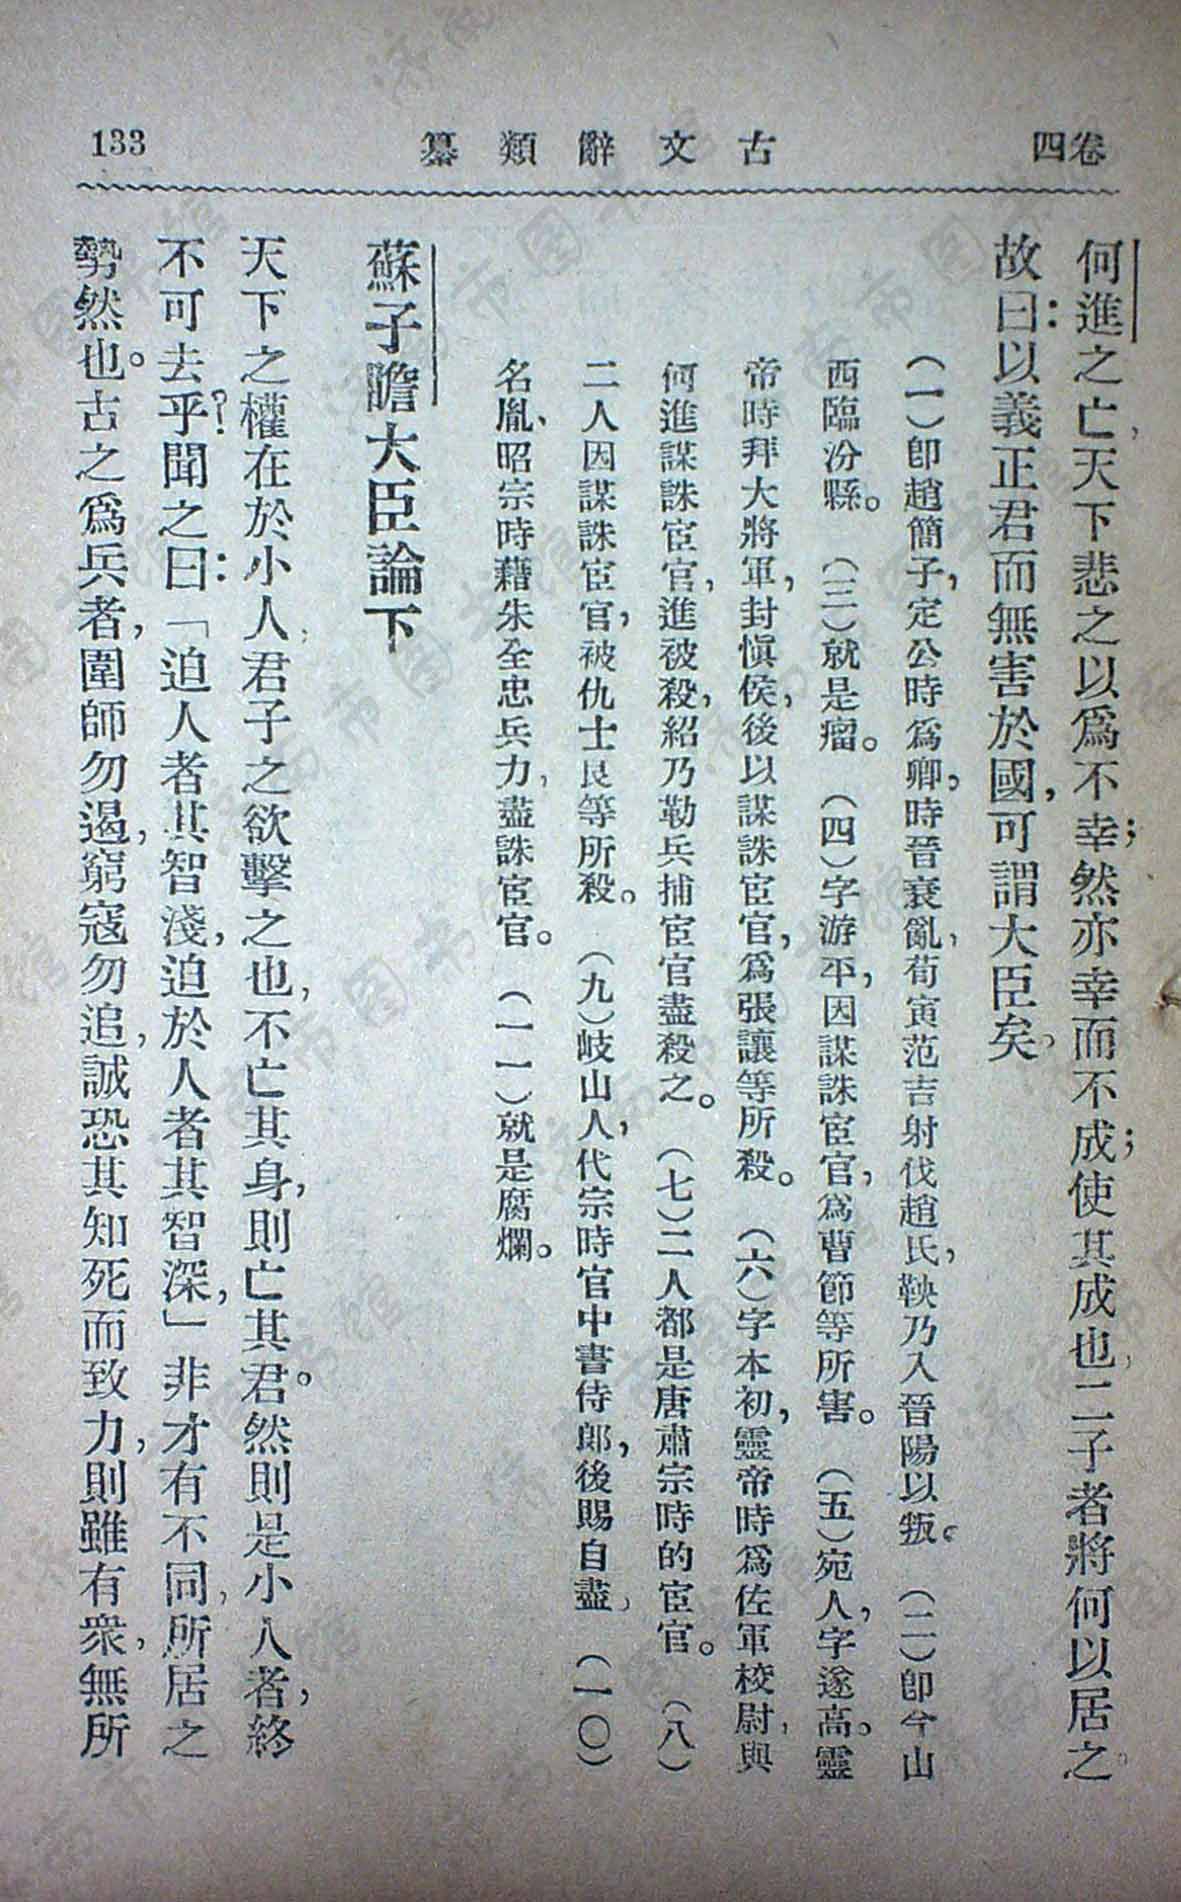 卷四
古文辭類纂
133
何進之亡，天下悲之，以爲不幸；然亦幸而不成；使其成也，二子者將何以居之。
故曰：以義正君而無害於國，可謂大臣矣。
（一）卽趙簡子，定公時爲卿，時晉衰亂，荀寅范吉射伐趙氏，鞅乃入晉陽以叛。（二）卽今山
西臨汾縣。（三）就是瘤。（四）字游平，因謀誅宦官，爲曹節等所害。（五）宛人，字遂高。靈
帝時拜大將軍，封愼侯，後以謀誅宦官，爲張讓等所殺。（六）字本初，靈帝時爲佐軍校尉，與
何進謀誅宦官，進被殺，紹乃勒兵捕宦官盡殺之。（七）二人都是唐肅宗時的宦官。（八）
二人因謀誅宦官，被仇士良等所殺。（九）岐山人，代宗時官中書侍郎，後賜自盡。（一〇）
名胤、昭宗時藉朱全忠兵力，盡誅宦官。（一一）就是腐爛。
蘇子瞻大臣論下
天下之權在於小人，君子之欲擊之也，不亡其身，則亡其君。然則是小人者，終
不可去乎？聞之曰：「迫人者其智淺，迫於人者其智深，」非才有不同，所居之
勢然也。古之爲兵者，圍師勿遏，窮寇勿追，誠恐其知死而致力，則雖有衆，無所